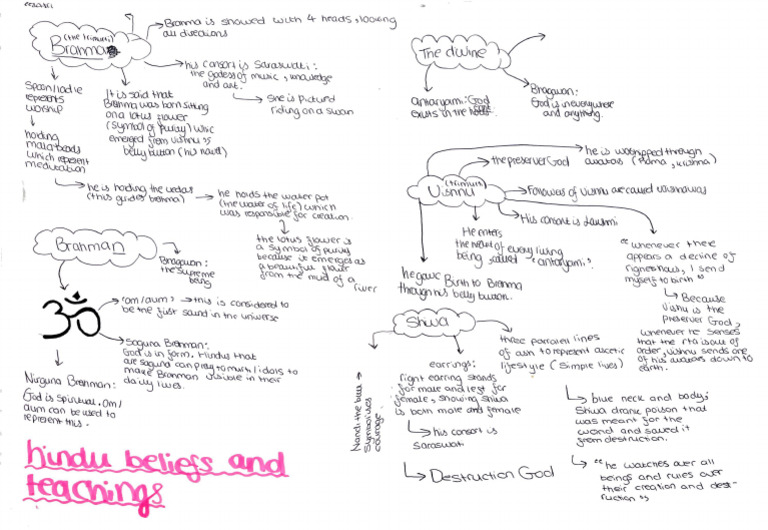 (the trimurti)
Brahma
Brahma is showed with 4 heads, looking
all directions
his consort is Saraswati:
the godess of music, knowledge
and art.
She is pictured
riding on a swan
Spoon/ladle
represents
worship
holding
mala beads
which represent
meditation
It is said that
Brahma was born sitting
on a lotus flower
(symbol of purity) which
emerged from vishnu's
belly button (his navel)
he is holding the vedas
(this guides brahma)
he holds the water pot
(the water of life) which
was responsible for creation.
the lotus flower is
a symbol of purity
because it emerges as
a beautiful flower
from the mud of a
river
Brahman
Bhagavan:
the supreme
being
ॐ
'om/aum'
this is considered to
be the first sound in the universe
Saguna Brahman:
God is in form. Hindus that
are saguna can pray to murtis/idols to
make Brahman visible in their
daily lives.
Nirguna Brahman:
God is spiritual. Om/
aum can be used to
represent this.
hindu beliefs and
teachings
The divine
antaryami: God
exists in the
Bhagavan:
God is in everywhere
and anything.
(trimurti)
Vishnu
he is worshipped through
avatars (Rama, Krishna)
the preserver God
Followers of Vishnu are called vaishnavas
His consort is Laxmi
He enters
the heart of every living
being called "antaryami".
he gave Birth to Brahma
through his belly button.
"whenever there
appears a decline of
righteous, I send
myself to birth"
Because
Vishnu is the
preserver God,
whenever he senses
that the rta is out of
order, vishnu sends one
of his avatars down to
earth.
Shiva
three parallel lines
of ash to represent ascetic
lifestyle (simple lives)
earrings:
right earring stands
for male and left for
female, showing Shiva
is both male and female
his consort is
Saraswati
Nandi the bull
symbolises
courage.
Destruction God
blue neck and body:
Shiva drank poison that
was meant for the
world and saved it
from destruction.
"he watches over all
beings and rules over
their creation and dest-
ruction"